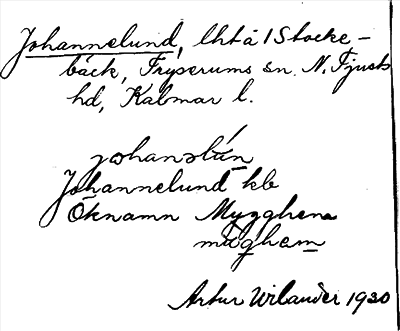 Johannelund, lht å 1 Stocke-
bäck, Fryserums sn. N. Tjusts
hd, Kalmar l.
johanəlún
Johannelund kb
Öknamn Mygghem
mug̣hem
Artur Wilander 1930